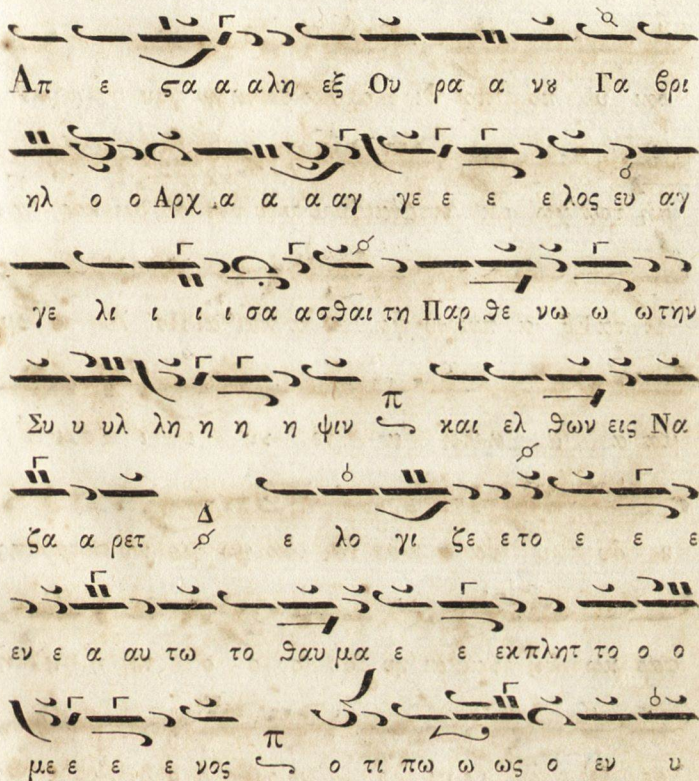 Απ ε ϛα α αλη εξ Ου ρα α νȣ Γα βρι
ηλ ο ο Αρχ α α α αγ γε ε ε ε λος ευ αγ
γε λι ι ι ι σα α σθαι τη Παρ θε νω ω ω την
Συ υ υλ λη η η η ψιν π και ελ θων εις Να
ζα α ρετ Δ ε λο γι ζε ε το ε ε ε
εν ε α αυ τω το θαυ μα ε ε εκ πλητ το ο ο
με ε ε ε νος π ο τι πω ω ως ο εν υ